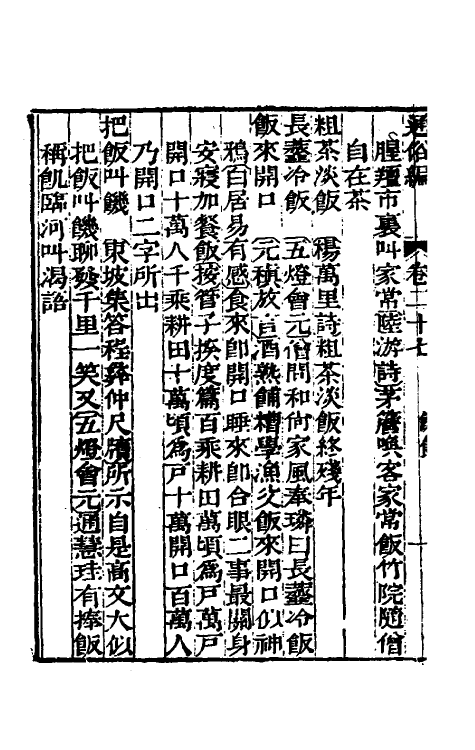 通俗編 卷二十七 飲食
腥羶市裏叫家常陸游詩茅簷喚客家常飯竹院隨僧
自在茶
粗茶淡飯 楊萬里詩粗茶淡飯終殘年
長虀冷飯 五燈會元僧問和尙家風奉璘曰長虀冷飯
飯來開口 元稹放言酒熟餔糟學漁父飯來開口似神
鴉白居易有感食來卽開口睡來卽合眼二事最關身
安寢加餐飯按管子揆度篇百乘耕田萬頃爲戸萬戸
開口十萬人千乘耕田十萬頃爲戸十萬開口百萬人
乃開口二字所出
把飯叫饑 東坡集答程彝仲尺牘所示自是高文大似
把飯叫饑聊發千里一笑又五燈會元通慧珪有捧飯
稱飢臨河叫渴語